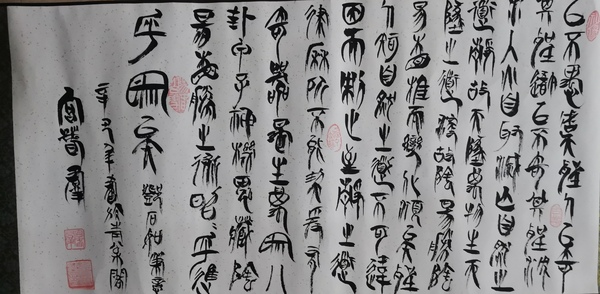 我以不愚虞聖人以奇
期聖我以不奇期聖沉
水入火自取滅亡自然之
道靜故天地萬物生天
地之道浸故陰陽勝陰
陽相推而變化順矣聖
人知自然之道不可違
因而制之至靜之道
律曆所不能契爰有
奇器是生萬象八
卦甲子神機鬼藏陰
陽相勝之術昭昭乎進
乎象矣
辛丑年書於青 閣